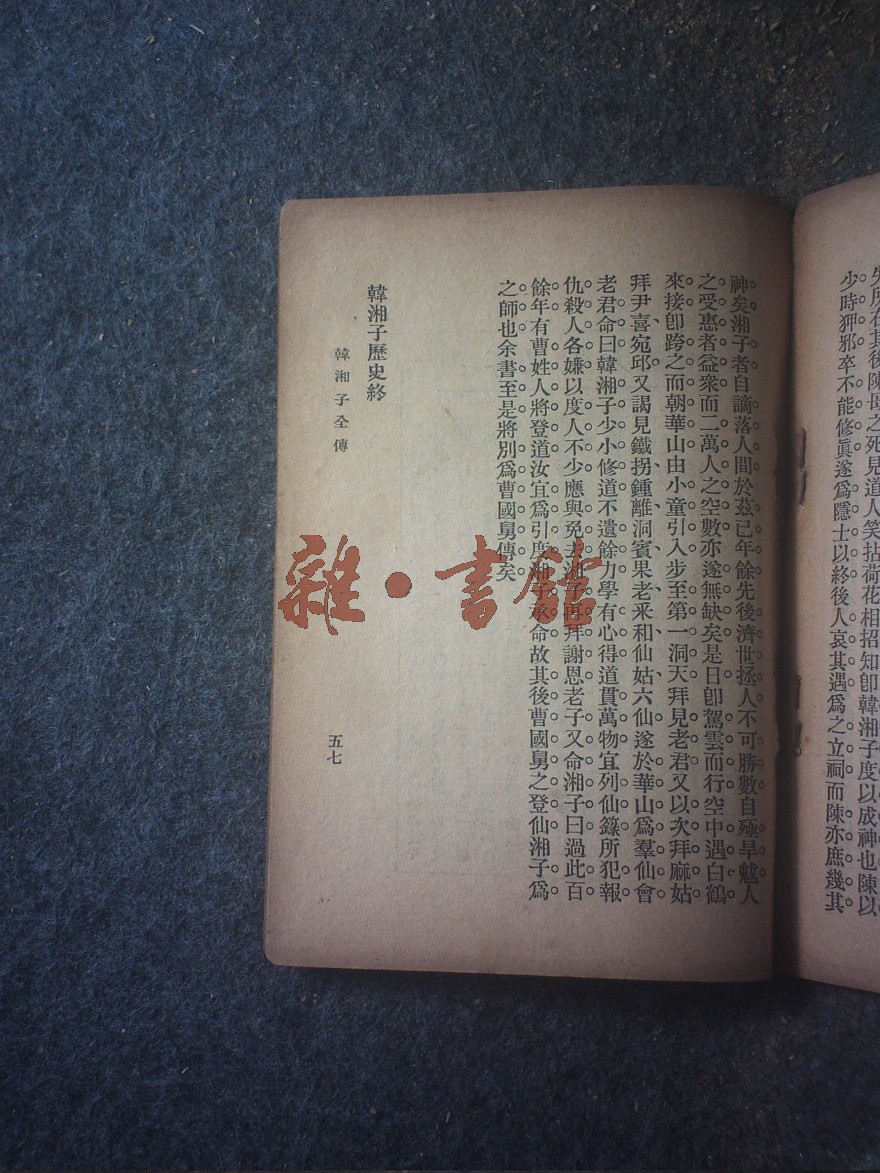 先所在其後陳母之死見道人笑拈荷花相招知卽韓湘子度以成神也陳以
少時狎邪卒不能修眞遂爲隱士以終後人哀其遇爲之立祠而陳亦庶幾其
神矣湘子者自謫落人間於茲已年餘先後濟世拯人不可勝數自殛旱魃人
之受惠者益衆而二萬人之空數亦遂無缺矣是日卽駕雲而行空中遇白鶴
來接卽跨之而朝華山由小童引入步至第一洞天拜見老君又以次拜麻姑
拜尹喜宛邱又謁見鐵拐鍾離洞賓果老采和仙姑六仙遂於華山爲羣仙會
老君命曰韓湘子少小修道不遺餘力學有心得道貫萬物宜列仙籙所犯報
仇殺人各嫌以度人不少應與免去湘子再拜謝恩老子又命湘子曰過此百
餘年有曹姓人將登道汝宜爲引度湘子承命故其後曹國舅之登仙湘子爲
之師也余書至是將別爲曹國舅傳矣
韓湘子歷史終
韓湘子全傳
五七
雜·書館